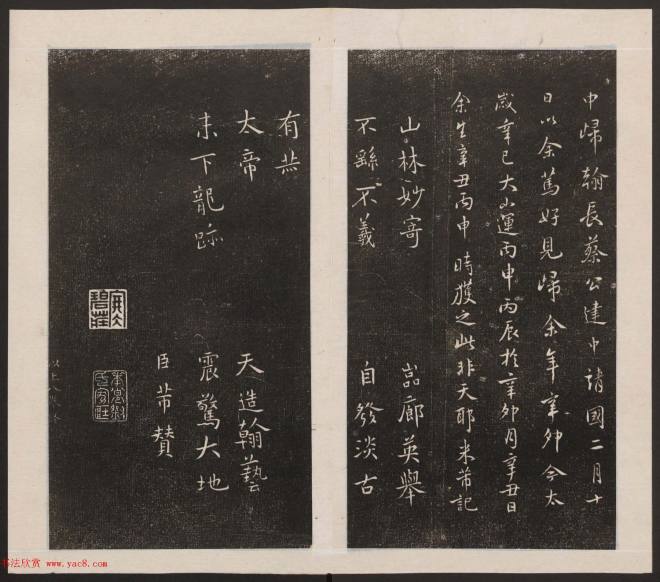 中歸翰長蔡公建中靖國二月十
日以余篤好見歸余年辛卯今太
歲辛巳大小運丙申丙辰於辛卯月辛丑日
余生辛丑丙申時獲之此非天耶米芾記
山林妙寄 嵓廊英舉
不繇不羲 自發淡古
有
太帝 天造翰藝
末下龍跡 震驚大地
臣芾贊
书法欣赏 www.yac8.com